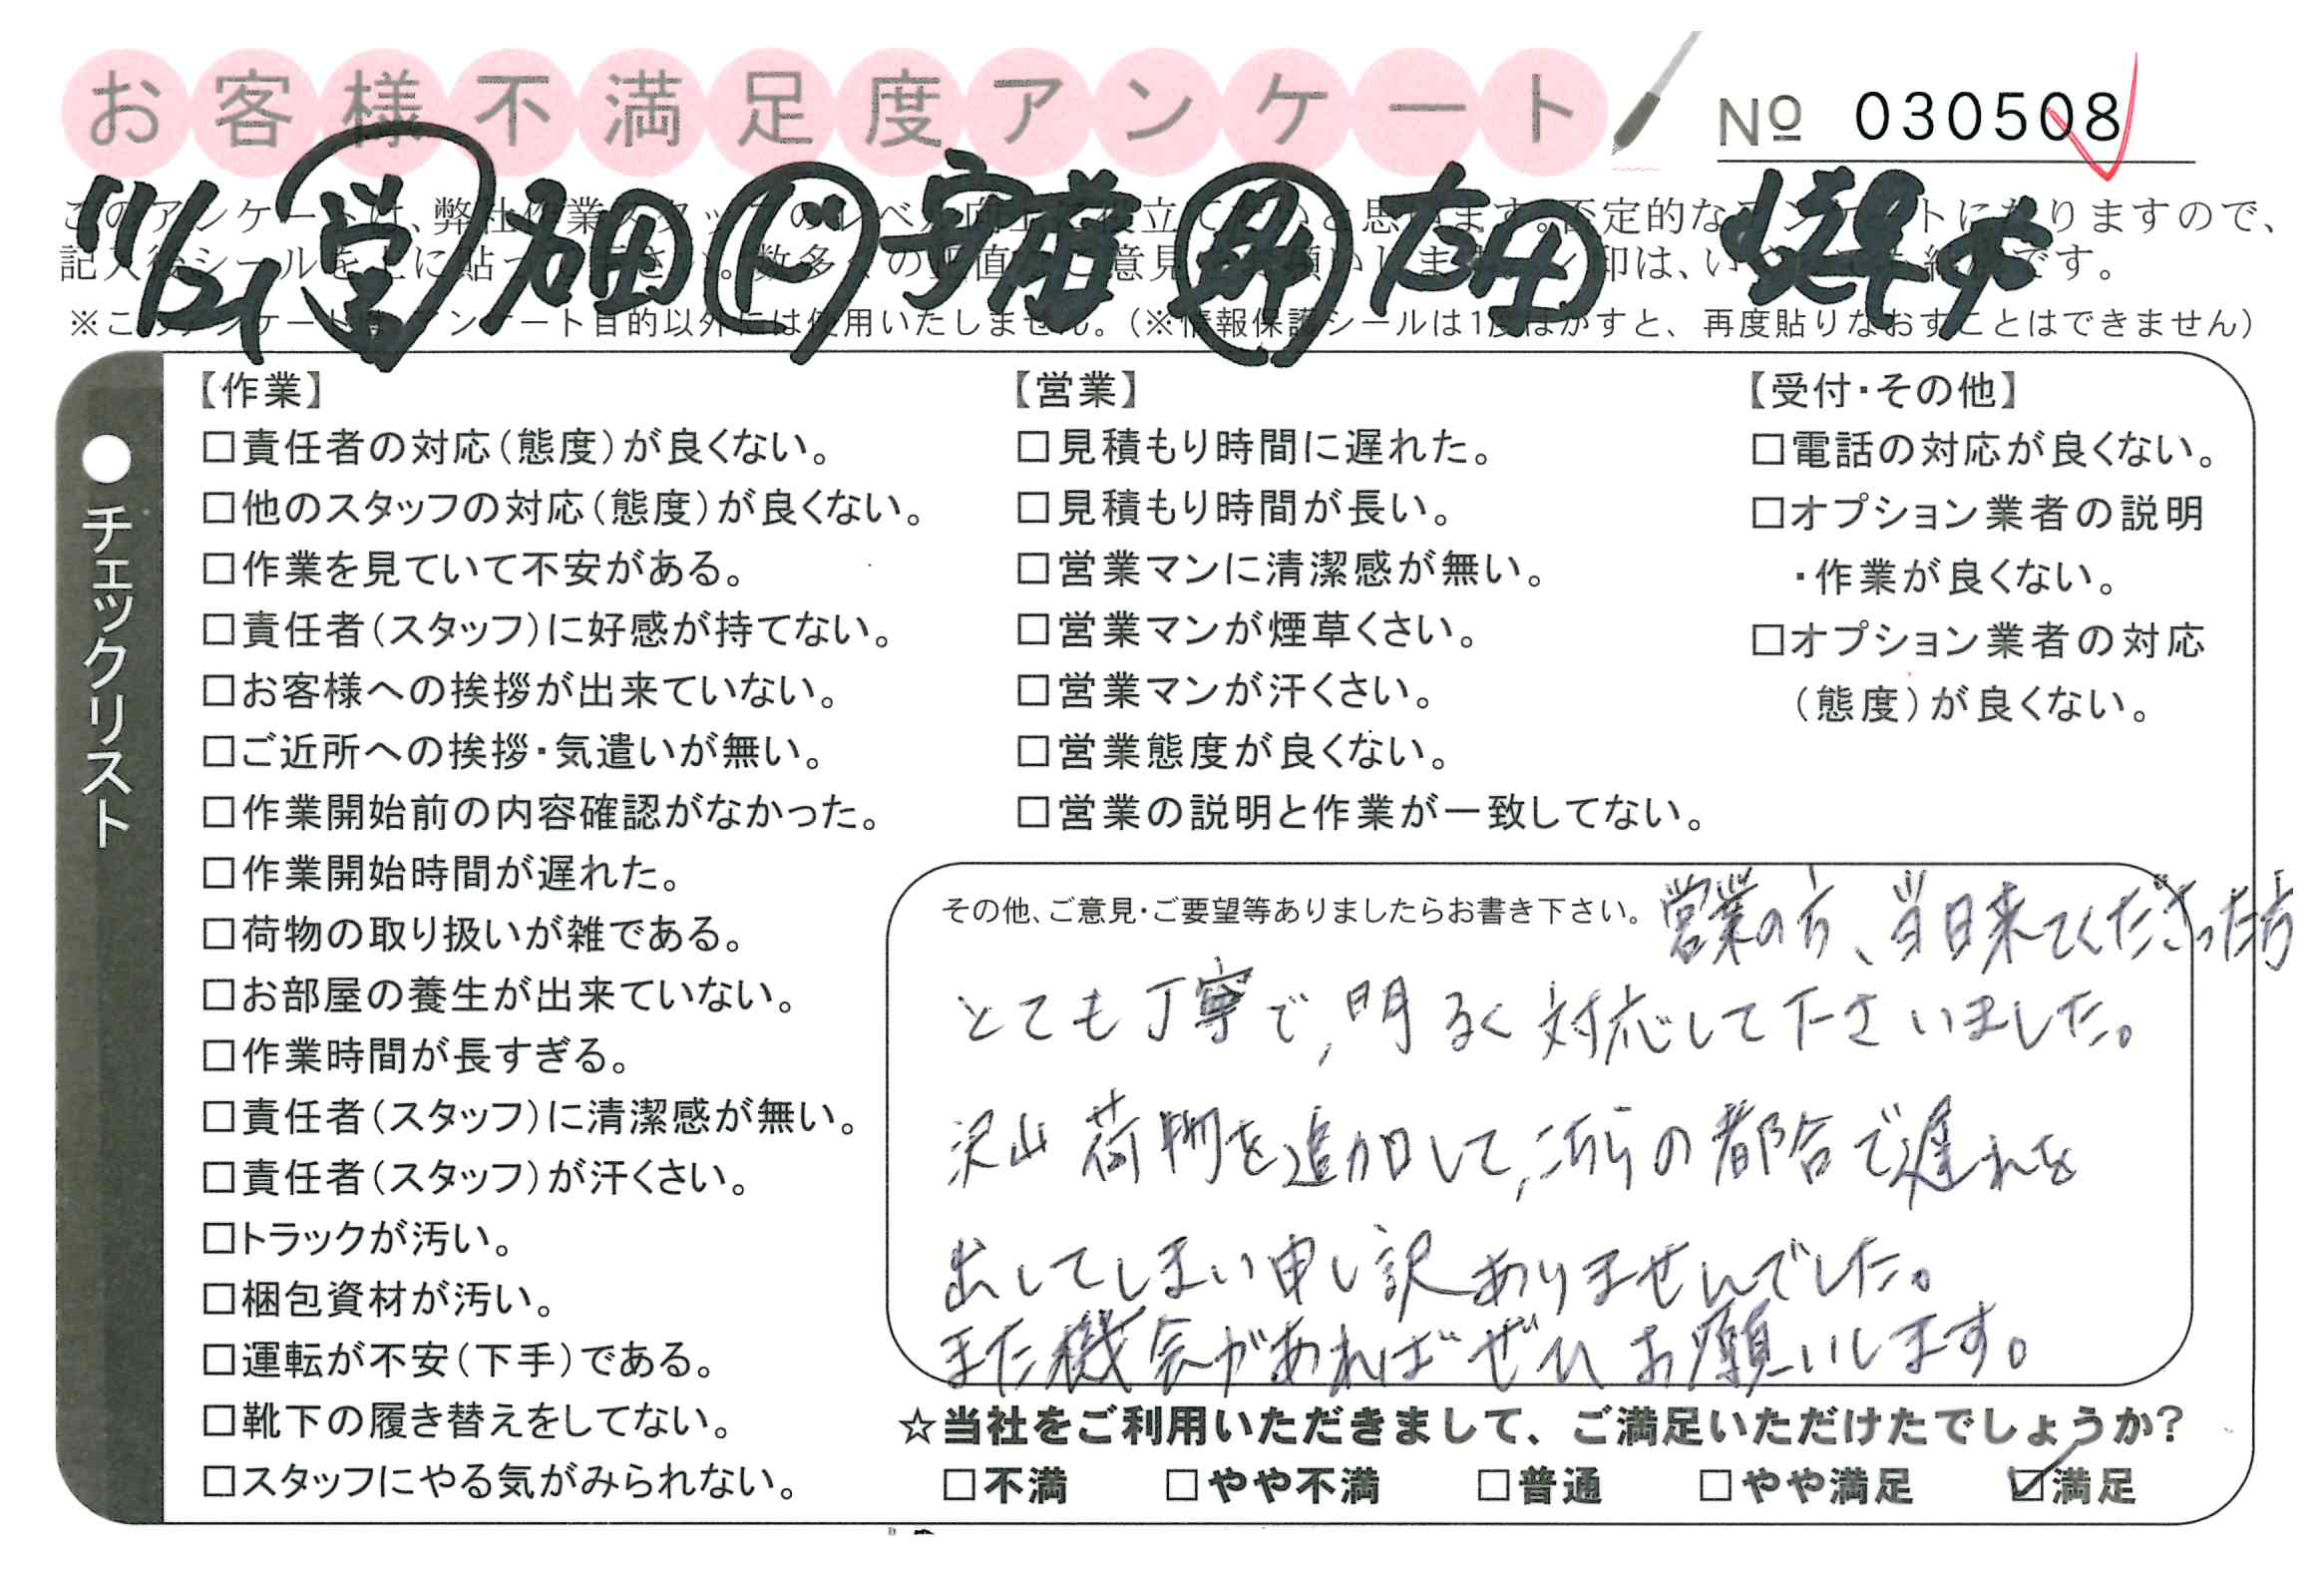 お客様不満足度アンケート
№ 030508
11/21 営 ド 安藤 助 太田
このアンケートは、弊社作業スタッフのレベル向上に役立てたいと思います。否定的なアンケートになりますので、
※このアンケートは、アンケート目的以外には使用いたしません。(※情報保護シールは1度はがすと、再度貼りなおすことはできません)
●チェックリスト
【作業】
□責任者の対応(態度)が良くない。
□他のスタッフの対応(態度)が良くない。
□作業を見ていて不安がある。
□責任者(スタッフ)に好感が持てない。
□お客様への挨拶が出来ていない。
□ご近所への挨拶・気遣いが無い。
□作業開始前の内容確認がなかった。
□作業開始時間が遅れた。
□荷物の取り扱いが雑である。
□お部屋の養生が出来ていない。
□作業時間が長すぎる。
□責任者(スタッフ)に清潔感が無い。
□責任者(スタッフ)が汗くさい。
□トラックが汚い。
□梱包資材が汚い。
□運転が不安(下手)である。
□靴下の履き替えをしてない。
□スタッフにやる気がみられない。
【営業】
□見積もり時間に遅れた。
□見積もり時間が長い。
□営業マンに清潔感が無い。
□営業マンが煙草くさい。
□営業マンが汗くさい。
□営業態度が良くない。
□営業の説明と作業が一致してない。
【受付・その他】
□電話の対応が良くない。
□オプション業者の説明
・作業が良くない。
□オプション業者の対応
(態度)が良くない。
その他、ご意見・ご要望等ありましたらお書き下さい。
営業の方、当日来てくださった方
とても丁寧で、明るく対応して下さいました。
沢山荷物を追加して、こちらの都合で遅れを
出してしまい申し訳ありませんでした。
また機会があればぜひお願いします。
☆当社をご利用いただきまして、ご満足いただけたでしょうか?
□不満 □やや不満 □普通 □やや満足 ☑満足